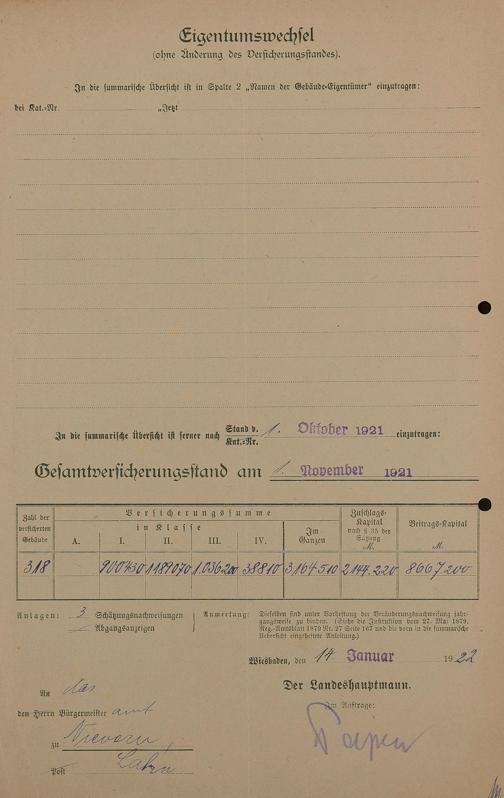 Eigentumswechsel
(ohne Änderung des Versicherungsstandes).
In die summarische Übersicht ist in Spalte 2 „Namen der Gebäude-Eigentümer“ einzutragen:
bei Kat.-Nr. „Jetzt
In die summarische Übersicht ist ferner nach Stand v. 1. Oktober 1921 einzutragen:
Knt.-Nr.
Gesamtversicherungsstand am 1. November 1921
Zahl der versicherten Gebäude
Versicherungssumme
in Klasse
A. I. II. III. IV.
Im Ganzen
Zuschlags-Kapital nach § 25 der Satzung M.
Beitrags-Kapital M.
318 900430 1189070 1.036.200 38810 3164510 2144.220 8667200
Anlagen: 3 Schätzungsnachweisungen
Abgangsanzeigen
Anmerkung: Dieselben sind unter Vorheftung der Veränderungsnachweisung jahr-
gangsweise zu binden. (Siehe die Instruktion vom 27. Mai 1879,
Reg.-Amtsblatt 1879 Nr. 27 Seite 167 und die vorn in die summarische
Uebersicht eingeheftete Anleitung.)
Wiesbaden, den 14. Januar 1922
Der Landeshauptmann.
Im Auftrage:
An das
den Herrn Bürgermeister amt
zu Nievern
Post